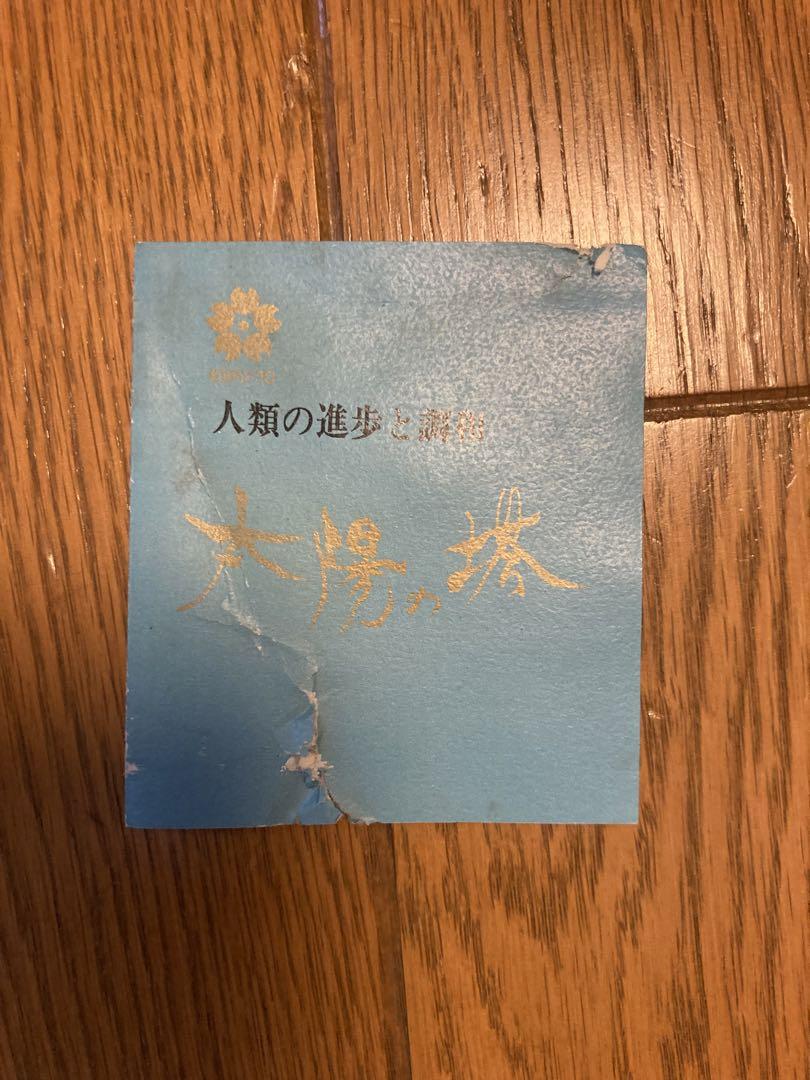 EXPO'70
人類の進歩と調和
太陽の塔